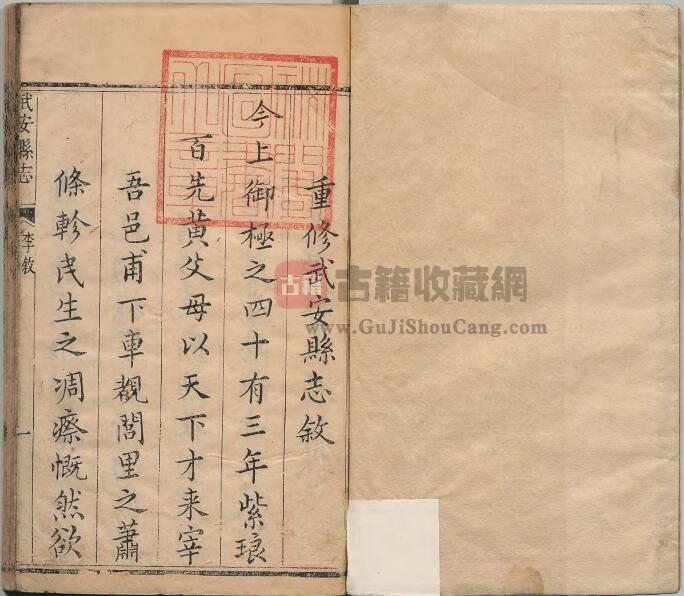 重修武安縣志敘
今上御極之四十有三年紫琅
百先黃父母以天下才来宰
吾邑甫下車覩閭里之蕭
條軫民生之凋瘵慨然欲
武安縣志
李敘
一
古籍
古籍收藏網
www.GuJiShouCang.com